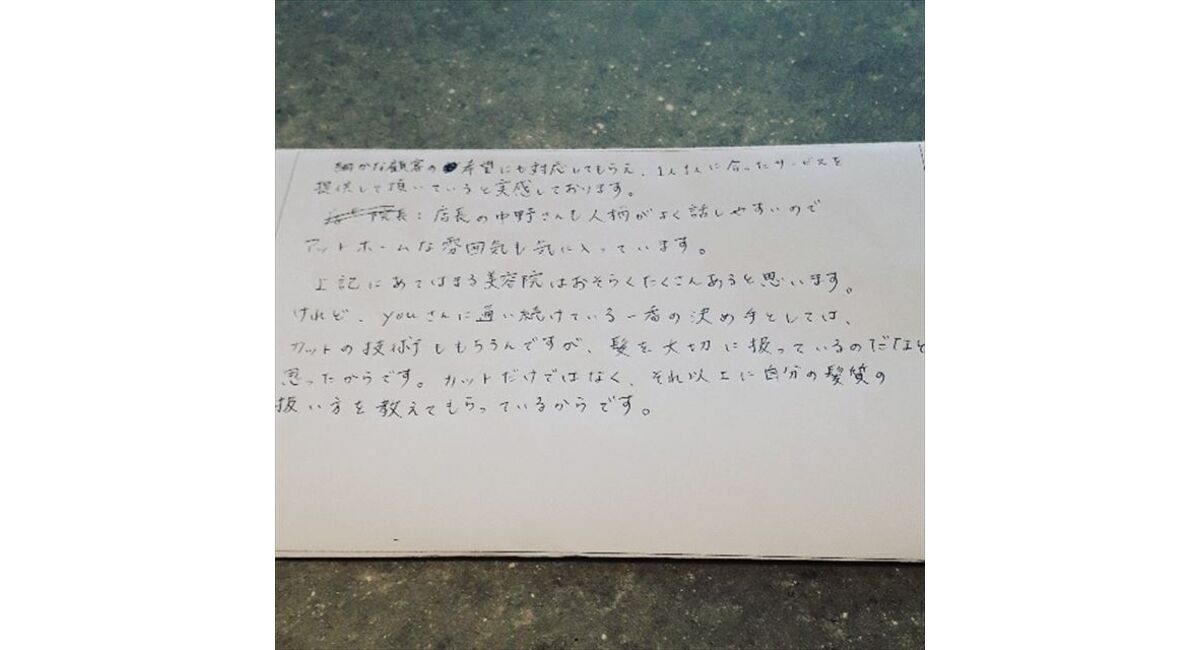 細かな顧客の希望にも対応してもらえ、1人1人に合ったサービスを
提供して頂いていると実感しております。
院長：店長の中野さんも人柄がよく話しやすいので
アットホームな雰囲気も気に入っています。
上記にあてはまる美容院はおそらくたくさんあると思います。
けれど、youさんに通い続けている一番の決め手としては、
カットの技術もそうなんですが、髪を大切に扱っているのだなと
思ったからです。カットだけではなく、それ以上に自分の髪質の
扱い方を教えてもらっているからです。